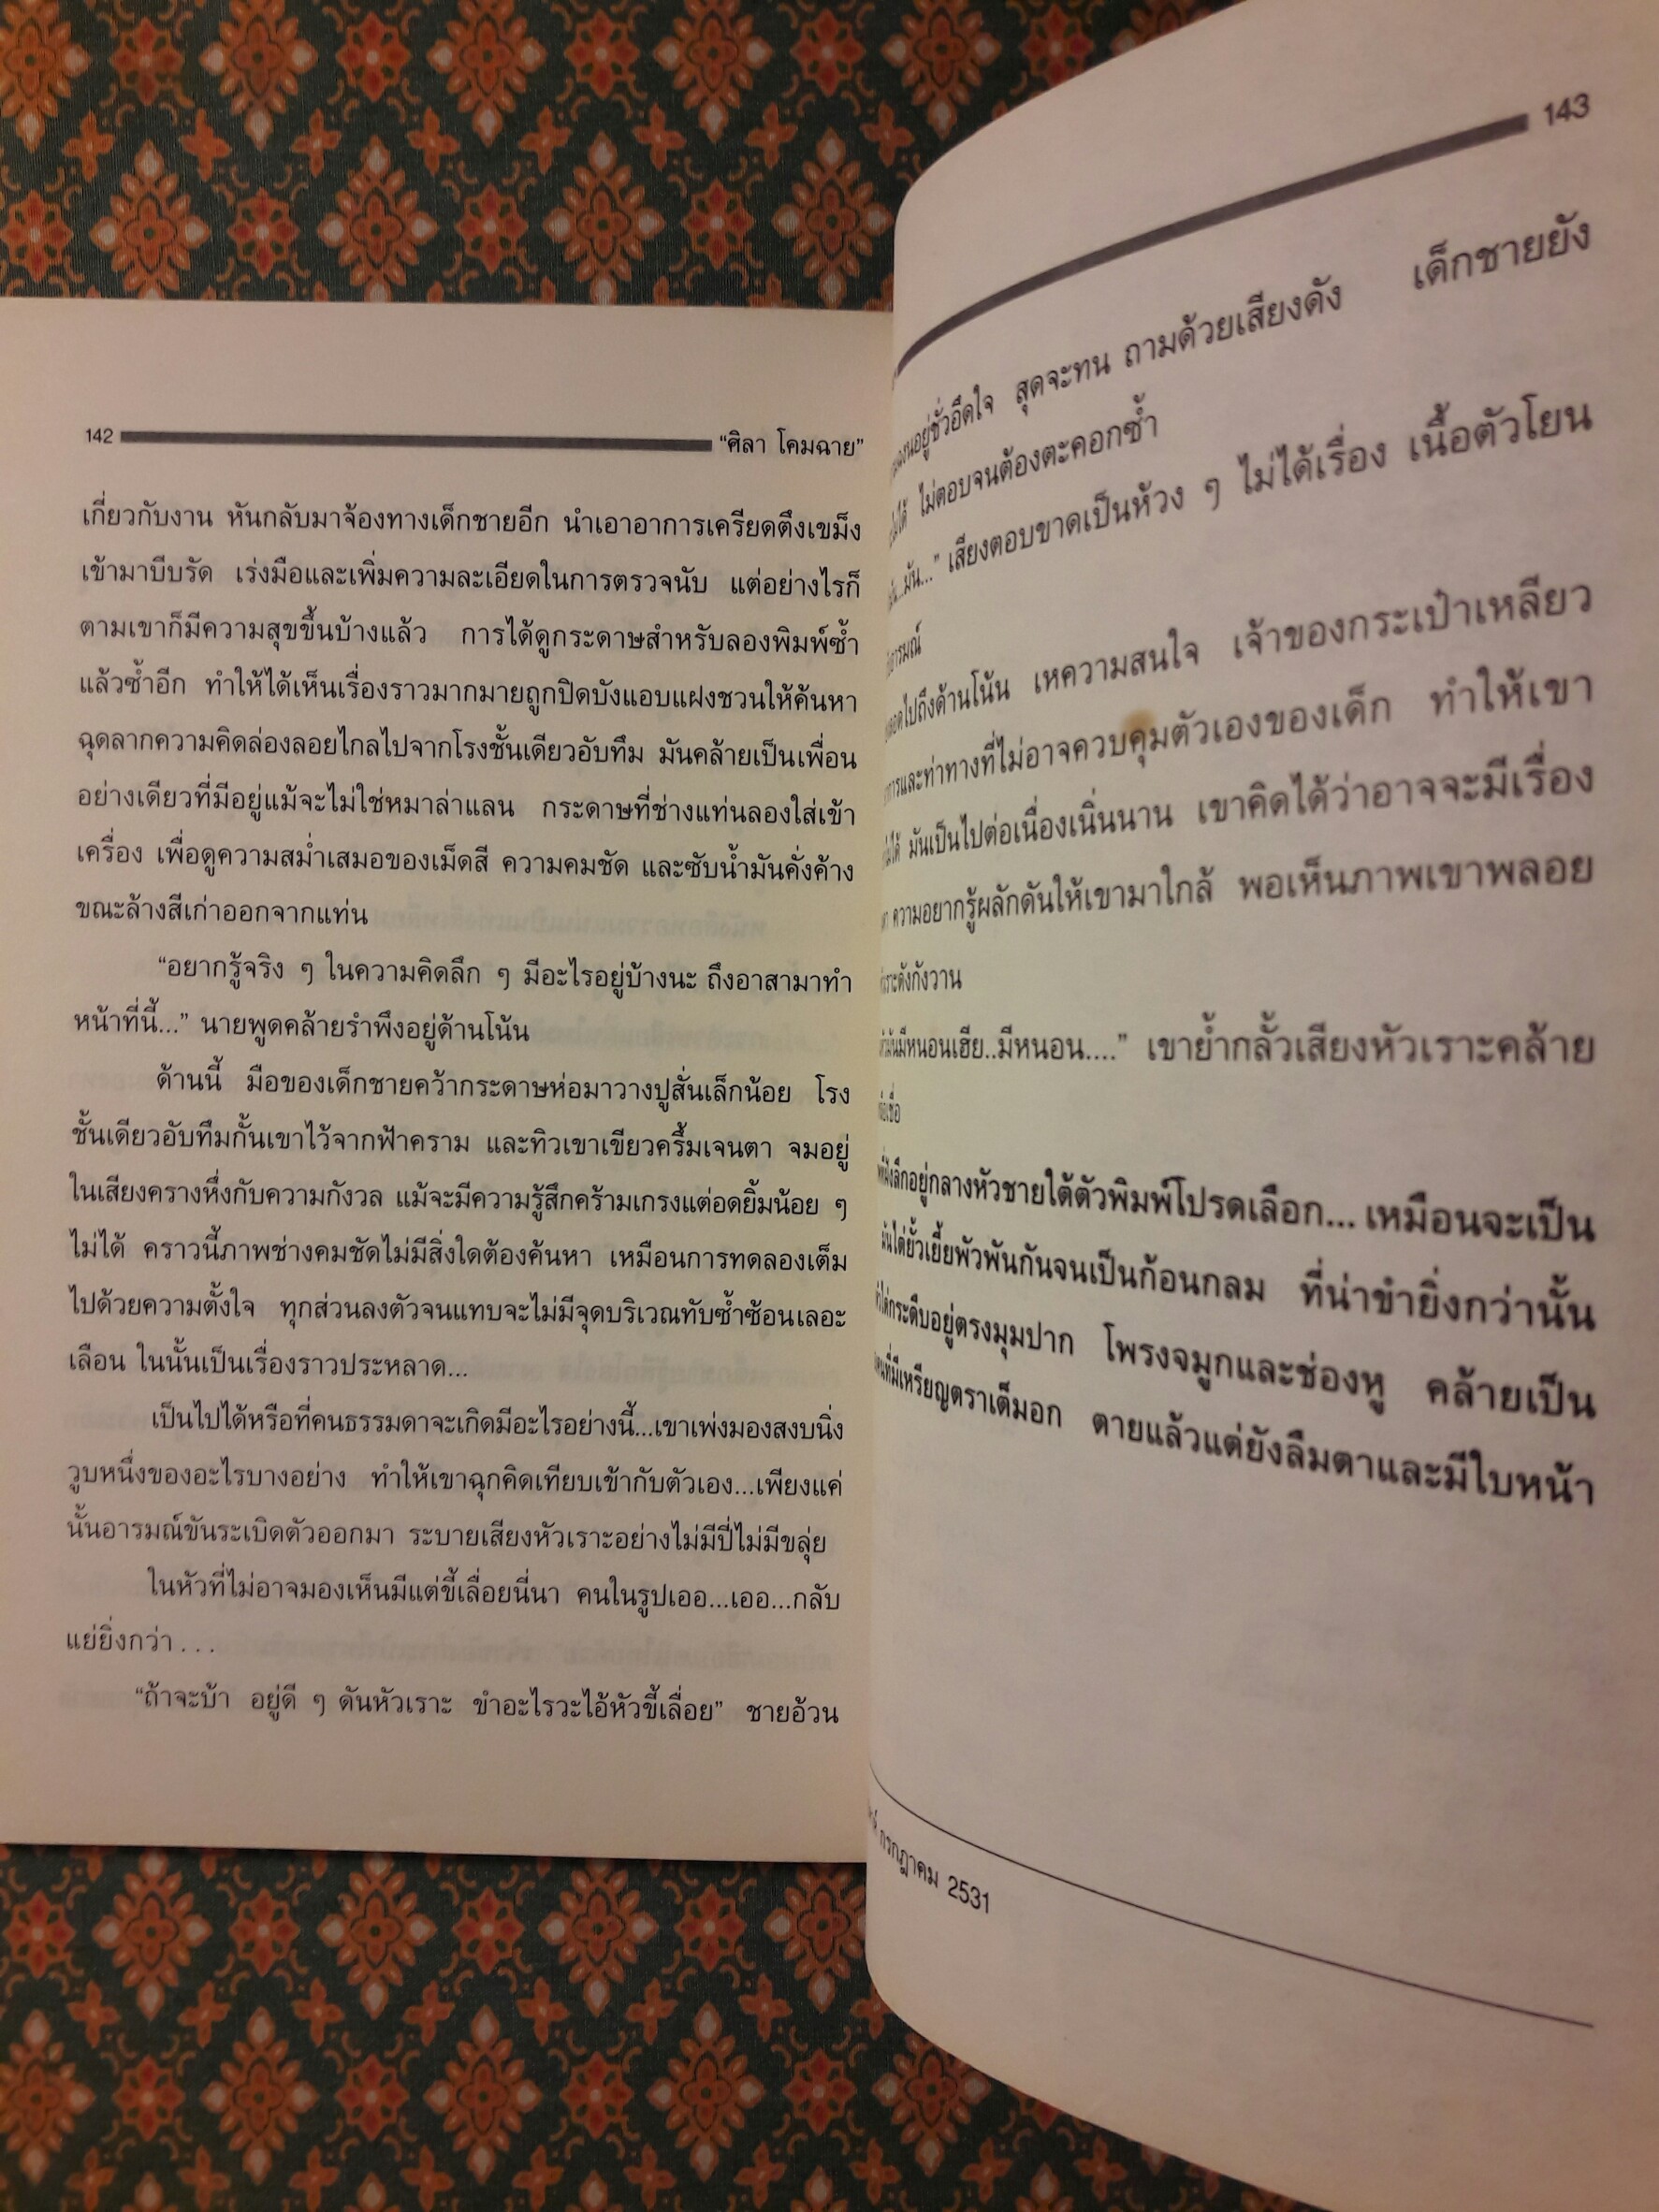 142
“ศิลา โคมฉาย”
เกี่ยวกับงาน หันกลับมาจ้องทางเด็กชายอีก นำเอาอาการเครียดตึงเขม็ง
เข้ามาบีบรัด เร่งมือและเพิ่มความละเอียดในการตรวจนับ แต่อย่างไรก็
ตามเขาก็มีความสุขขึ้นบ้างแล้ว การได้ดูกระดาษสำหรับลองพิมพ์ซ้ำ
แล้วซ้ำอีก ทำให้ได้เห็นเรื่องราวมากมายถูกปิดบังแอบแฝงชวนให้ค้นหา
ฉุดลากความคิดล่องลอยไกลไปจากโรงชั้นเดียวอับทึม มันคล้ายเป็นเพื่อน
อย่างเดียวที่มีอยู่แม้จะไม่ใช่หมาล่าแลน กระดาษที่ช่างแท่นลองใส่เข้า
เครื่อง เพื่อดูความสม่ำเสมอของเม็ดสี ความคมชัด และซับน้ำมันคั่งค้าง
ขณะล้างสีเก่าออกจากแท่น
“อยากรู้จริง ๆ ในความคิดลึก ๆ มีอะไรอยู่บ้างนะ ถึงอาสามาทำ
หน้าที่นี้...” นายพูดคล้ายรำพึงอยู่ด้านโน้น
ด้านนี้ มือของเด็กชายคว้ากระดาษห่อมาวางปูสั่นเล็กน้อย โรง
ชั้นเดียวอับทึมกั้นเขาไว้จากฟ้าคราม และทิวเขาเขียวครึ้มเจนตา จมอยู่
ในเสียงครางหึ่งกับความกังวล แม้จะมีความรู้สึกคร้ามเกรงแต่อดยิ้มน้อย ๆ
ไม่ได้ คราวนี้ภาพช่างคมชัดไม่มีสิ่งใดต้องค้นหา เหมือนการทดลองเต็ม
ไปด้วยความตั้งใจ ทุกส่วนลงตัวจนแทบจะไม่มีจุดบริเวณทับซ้ำซ้อนเลอะ
เลือน ในนั้นเป็นเรื่องราวประหลาด...
เป็นไปได้หรือที่คนธรรมดาจะเกิดมีอะไรอย่างนี้...เขาเพ่งมองสงบนิ่ง
วูบหนึ่งของอะไรบางอย่าง ทำให้เขาฉุกคิดเทียบเข้ากับตัวเอง...เพียงแค่
นั้นอารมณ์ขันระเบิดตัวออกมา ระบายเสียงหัวเราะอย่างไม่มีปี่ไม่มีขลุ่ย
ในหัวที่ไม่อาจมองเห็นมีแต่ขี้เลื่อยนี่นา คนในรูปเออ...เออ...กลับ
แย่ยิ่งกว่า...
“ถ้าจะบ้า อยู่ดี ๆ ดันหัวเราะ ขำอะไรวะไอ้หัวขี้เลื่อย” ชายอ้วน
143
อยู่ชั่วอึดใจ สุดจะทน ถามด้วยเสียงดัง เด็กชายยัง
ไม่ตอบจนต้องตะคอกซ้ำ
มัน...” เสียงตอบขาดเป็นห้วง ๆ ไม่ได้เรื่อง เนื้อตัวโยน
ไปถึงด้านโน้น เหความสนใจ เจ้าของกระเป๋าเหลียว
และท่าทางที่ไม่อาจควบคุมตัวเองของเด็ก ทำให้เขา
มันเป็นไปต่อเนื่องเนิ่นนาน เขาคิดได้ว่าอาจจะมีเรื่อง
ความอยากรู้ผลักดันให้เขามาใกล้ พอเห็นภาพเขาพลอย
ดังกังวาน
มีหนอนเฮีย..มีหนอน....” เขาย้ำกลั้วเสียงหัวเราะคล้าย
ลึกอยู่กลางหัวชายใต้ตัวพิมพ์โปรดเลือก... เหมือนจะเป็น
ไต่ยั้วเยี้ยพัวพันกันจนเป็นก้อนกลม ที่น่าขำยิ่งกว่านั้น
กระดืบอยู่ตรงมุมปาก โพรงจมูกและช่องหู คล้ายเป็น
ที่มีเหรียญตราเต็มอก ตายแล้วแต่ยังลืมตาและมีใบหน้า
กรกฎาคม 2531